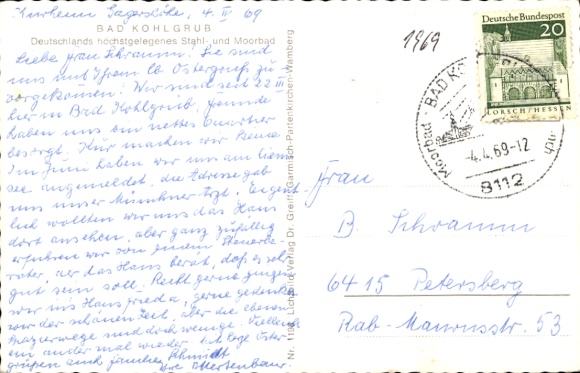 Kurheim Jägershöhe, 4. IV 69
BAD KOHLGRUB
Deutschlands höchstgelegenes Stahl- und Moorbad
Liebe Frau Schramm! Sie sind
uns mit Ihrem lb Ostergruß zu
vorgekommen. Wir sind seit 22 III
hier in Bad Kohlgrub. Freunde
haben uns ein nettes Quartier
besorgt. Kur machen wir keine
Im Juni haben wir uns am
see angemeldet, die Adresse gab
uns unser Münchner Arzt. Eigent
lich wollten wir uns das Haus
dort ansehen, aber ganz zufällig
erfuhren wir von einem Steuerbe-
rater, der das Haus berät, daß es sehr
gut sein soll. Recht gerne gingen
wir ins Haus, gerne gedenken
wir der schönen Zeit, aber die ebenen
Spazierwege sind doch wenige. Vielleicht
ein ander mal wieder. Oster
grüßen auch Familien Schmidt
Ihre
Nr. 1198 Lichtbild-Verlag Dr. Greiff, Garmisch-Partenkirchen-Wamberg
1969
Deutsche Bundespost
20
LORSCH/HESSEN
BAD KOHLGRUB
Moorbad
4.4.69-12
8112
Frau
B. Schramm
6415 Petersberg
Rab-Maurusstr. 53